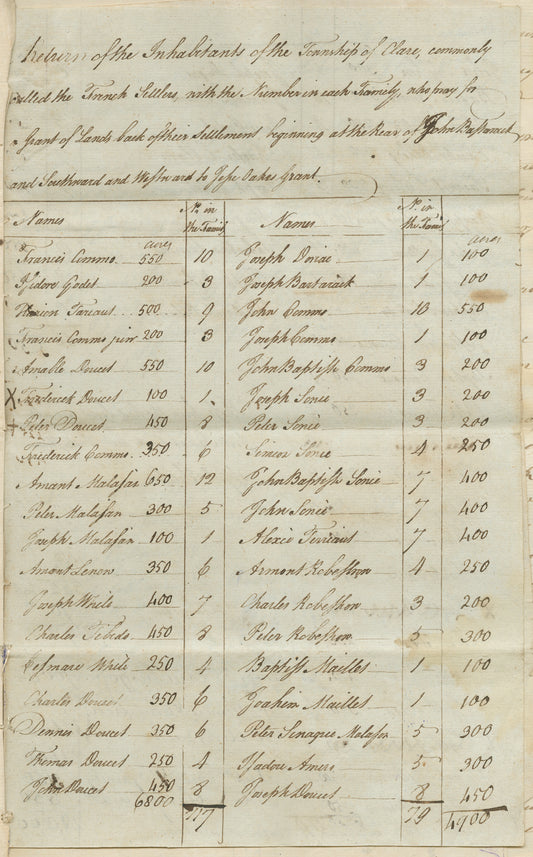 Return of the Inhabitants of the Township of Clare, commonly
called the French Settlers, with the Number in each Family, who pray for
a Grant of Lands back of their Settlement beginning at the Rear of John Bastarack
and Southward and Westward to Jesse Oakes Grant.
Names acres No. in the Family Names No. in the Family acres
Francis Commo 550 10 Joseph 1 100
Isidore Godet 200 3 Joseph Bartarack 1 100
Tariaut 500 9 John Commo 10 550
Francis Commo junr 200 3 Joseph Commo 1 100
Amable Doucet 550 10 John Baptiste Commo 3 200
X Frederick Doucet 100 1 Joseph Sonie 3 200
+ Peter Doucet 450 8 Peter Sonie 3 200
Frederick Commo 350 6 Simon Sonie 4 250
Amant Malasan 650 12 John Baptist Sonie 7 400
Peter Malasan 300 5 John Sonie 7 400
Joseph Malasan 100 1 Alexie Teriaut 7 400
Amant Lenow 350 6 Armont Robeshow 4 250
Joseph White 400 7 Charles Robeshow 3 200
Charles Tebedo 450 8 Peter Robeshow 5 300
White 250 4 Baptist Maillet 1 100
Charles Doucet 350 6 Joahim Maillet 1 100
Dennis Doucet 350 6 Peter Malason 5 300
Thomas Doucet 250 4 Isadore Amero 5 300
John Doucet 450 8 Joseph Doucet 8 450
6800 117 79 4900